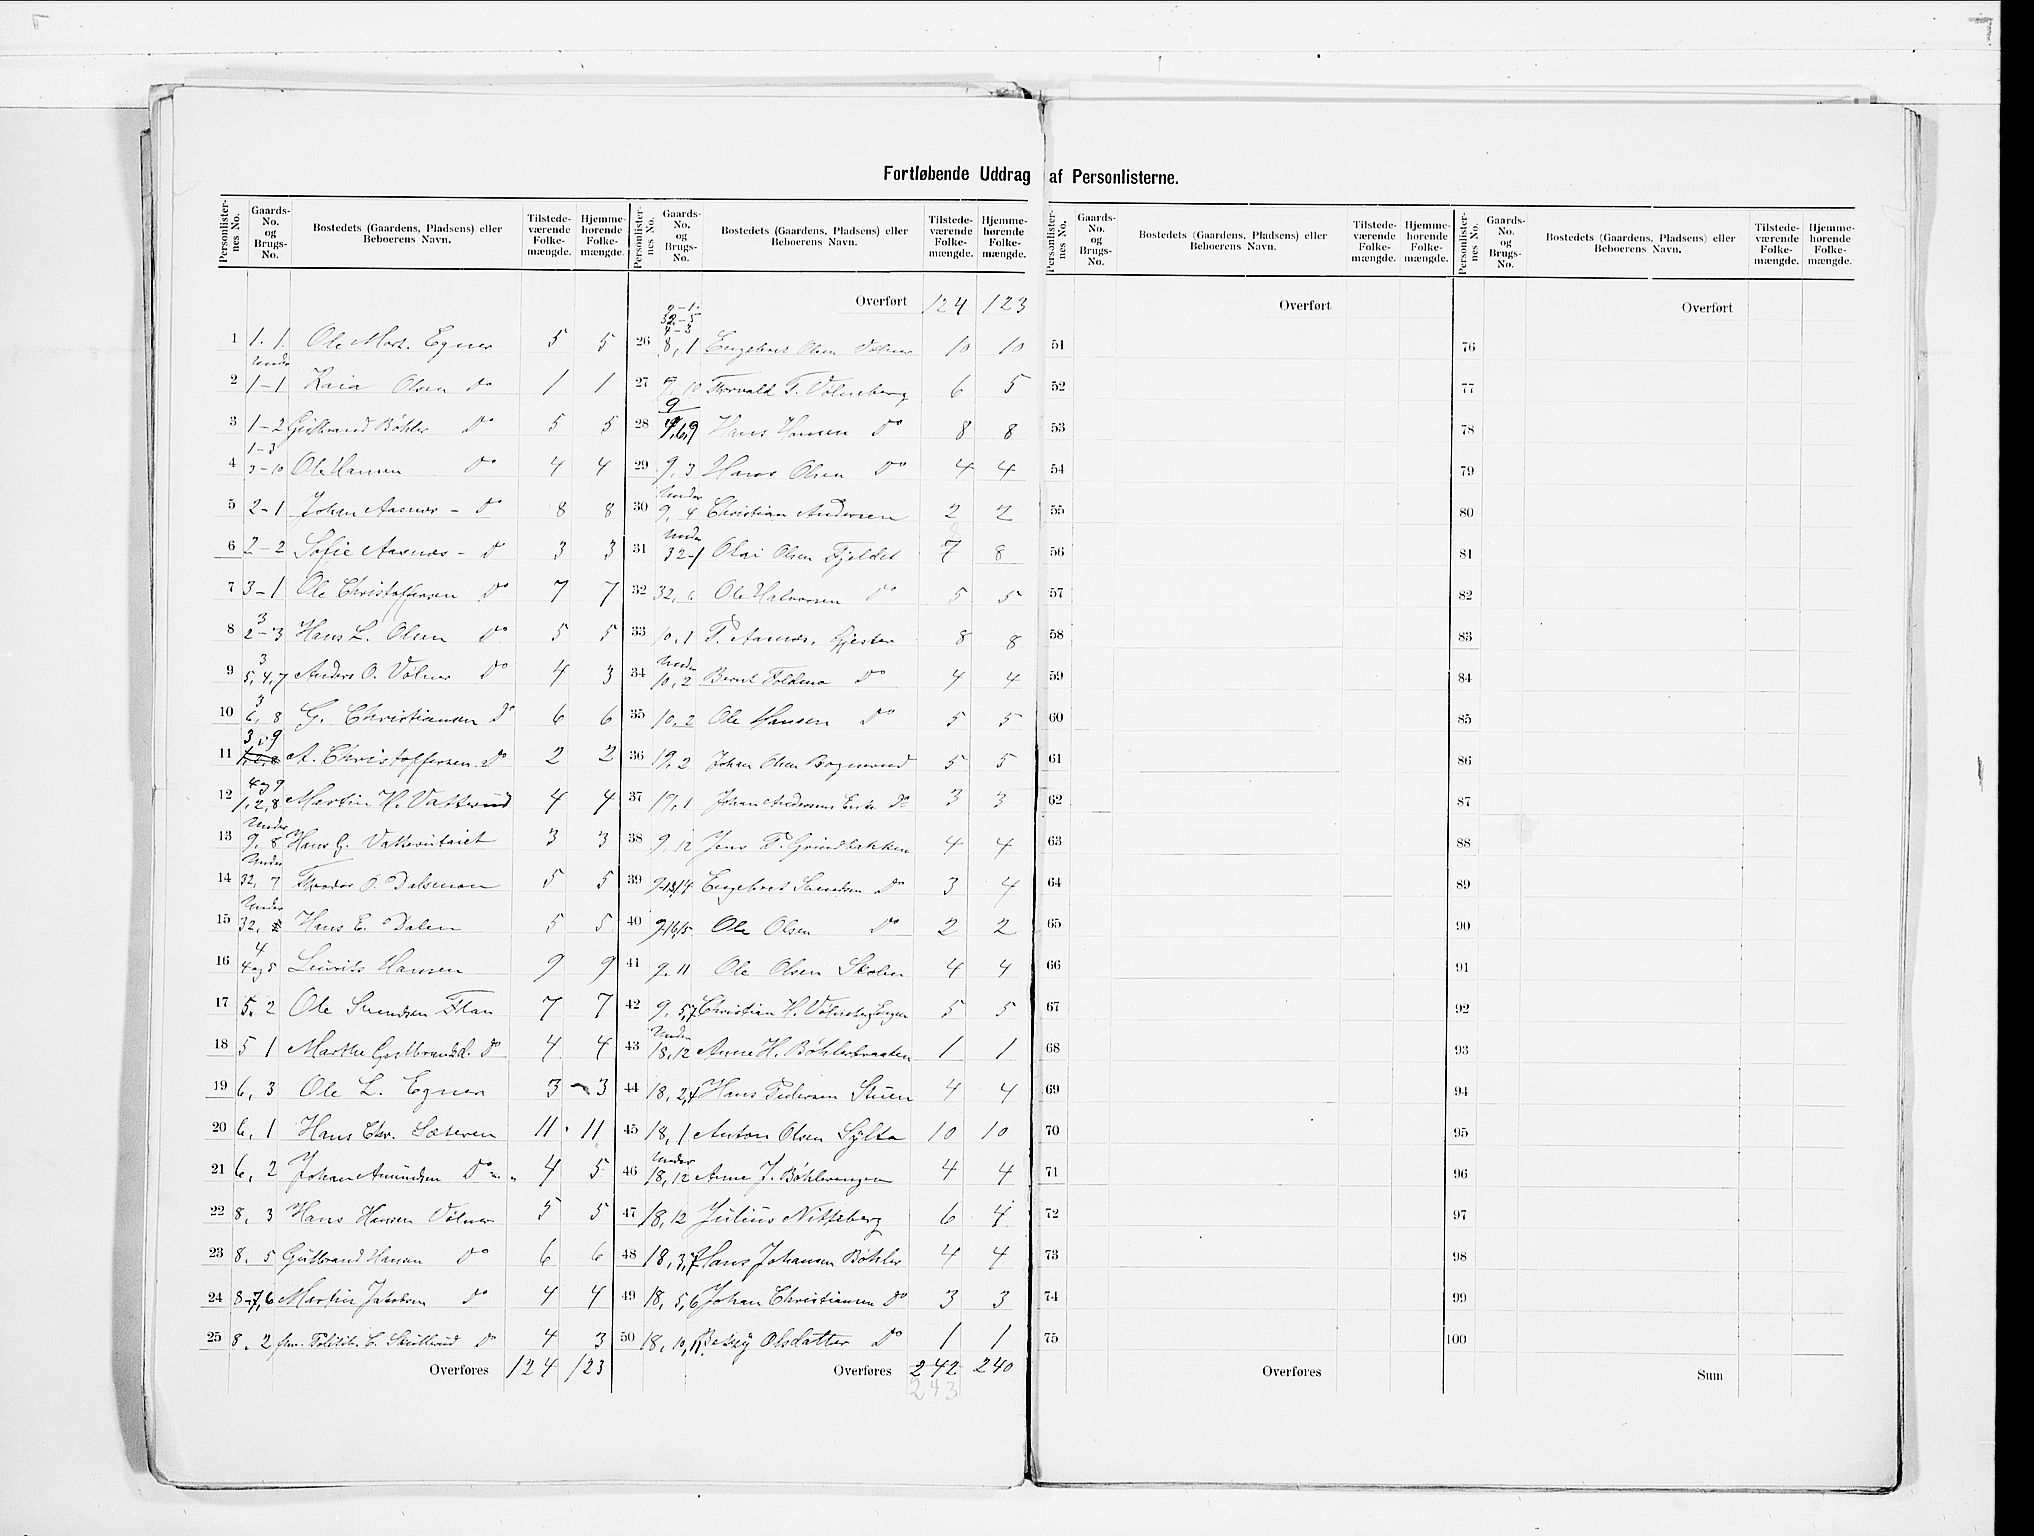 Fortløbende Uddrag af Personlisterne.
Personlisternes No. Gaards-No. og Brugs-No. Bostedets (Gaardens, Pladsens) eller Beboerens Navn. Tilstedeværende Folkemængde. Hjemmehørende Folkemængde.
1 1. 1. Ole Mart. Egner 5 5
2 Under 1-1 Kaia Olsen Do 1 1
3 1-2 Gulbrand Bøhler Do 5 5
4 1-3 3-10 Ole Hansen Do 4 4
5 2-1 Johan Aasnæs - Do 8 8
6 2-2 Sofie Aasnæs - Do 3 3
7 3-1 Ole Christoffersen Do 7 7
8 3 2-3 Hans L. Olsen Do 5 5
9 3 5, 4, 7 Anders O. Vølner Do 4 3
10 3 6, 8 G. Christiansen Do 6 6
11 3, 9 A. Christoffersen Do 2 2
12 4 og 9 1, 2, 8 Martin H. Vatterud 4 4
13 Under 9, 8 Hans G. 3 3
14 Under 32, 7 O. Dalsmoen 5 5
15 Under 32, Hans E. Dalen 5 5
16 4 4 og 5 Laurits Hansen 9 9
17 5. 2 Ole Svendsen Flan 7 7
18 5 1 Marthe Gulbrandsd. Do 4 4
19 6, 3 Ole L. Egner 3 3
20 6, 1 Hans Chr. Sæteren 11 11
21 6, 2 Johan Amundsen Do 4 5
22 8, 3 Hans Hansen Vølner 5 5
23 8. 5 Gulbrand Hansen Do 6 6
24 8-7, 6 Martin Jakobsen Do 4 4
25 8. 2 C. Skulstad Do 4 3
Overføres 124 123
Personlisternes No. Gaards-No. og Brugs-No. Bostedets (Gaardens, Pladsens) eller Beboerens Navn. Tilstedeværende Folkemængde. Hjemmehørende Folkemængde.
Overført 124 123
26 9-1. 32-5 4-3 8, 1 Engebret Olsen Vølner 10 10
27 9, 10 Thorvald T. Vølneberg 6 5
28 9 Hans Hansen Do 8 8
29 9, 3 Hans Olsen Do 4 4
30 Under 9, 4 Christian Andersen 2 2
31 Under 32-1 Olai Olsen Fjeldet 7 8
32 32, 6 Ole Halvorsen Do 5 5
33 10, 1 P. Aasnæs, Gjester 8 8
34 Under 10, 2 Bernt Foldmo Do 4 4
35 10, 2 Ole Hansen Do 5 5
36 19, 2 Johan Olsen Bognerud 5 5
37 19, 1 Johan Andersens Enke Do 3 3
38 9, 12 Jens P. Grindbakken 4 4
39 9-13,14 Engebret Svendsen Do 3 4
40 9-16,15 Ole Olsen Do 2 2
41 9. 11 Ole Olsen 4 4
42 9, 5,7 Christian H. 5 5
43 Under 18, 12 Anne H. Bøhlerbraaten 1 1
44 18, 2,4 Hans Pedersen Stuen 4 4
45 18, 1 Anton Olsen Sylta 10 10
46 Under 18, 12 Anne J. Bøhlerengen 4 4
47 18, 12 Julius Nitteberg 6 4
48 18, 3,7 Hans Johansen Bøhler 4 4
49 18, 5, 6 Johan Christiansen Do 3 3
50 18, 10, 11 Olsdatter Do 1 1
Overføres 242 240
243
Personlisternes No. Gaards-No. og Brugs-No. Bostedets (Gaardens, Pladsens) eller Beboerens Navn. Tilstedeværende Folkemængde. Hjemmehørende Folkemængde.
Overført
51
52
53
54
55
56
57
58
59
60
61
62
63
64
65
66
67
68
69
70
71
72
73
74
75
Overføres
Personlisternes No. Gaards-No. og Brugs-No. Bostedets (Gaardens, Pladsens) eller Beboerens Navn. Tilstedeværende Folkemængde. Hjemmehørende Folkemængde.
Overført
76
77
78
79
80
81
82
83
84
85
86
87
88
89
90
91
92
93
94
95
96
97
98
99
100
Sum